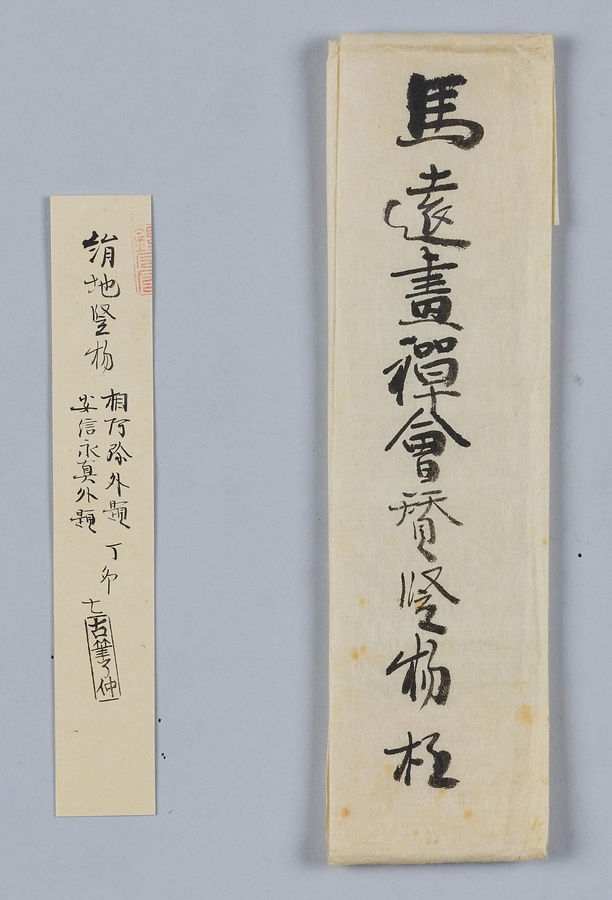 馬遠畫禪會賛竪物 極
絹地竪物
相阿弥外題
安信永真外題
丁卯
七
古筆了仲